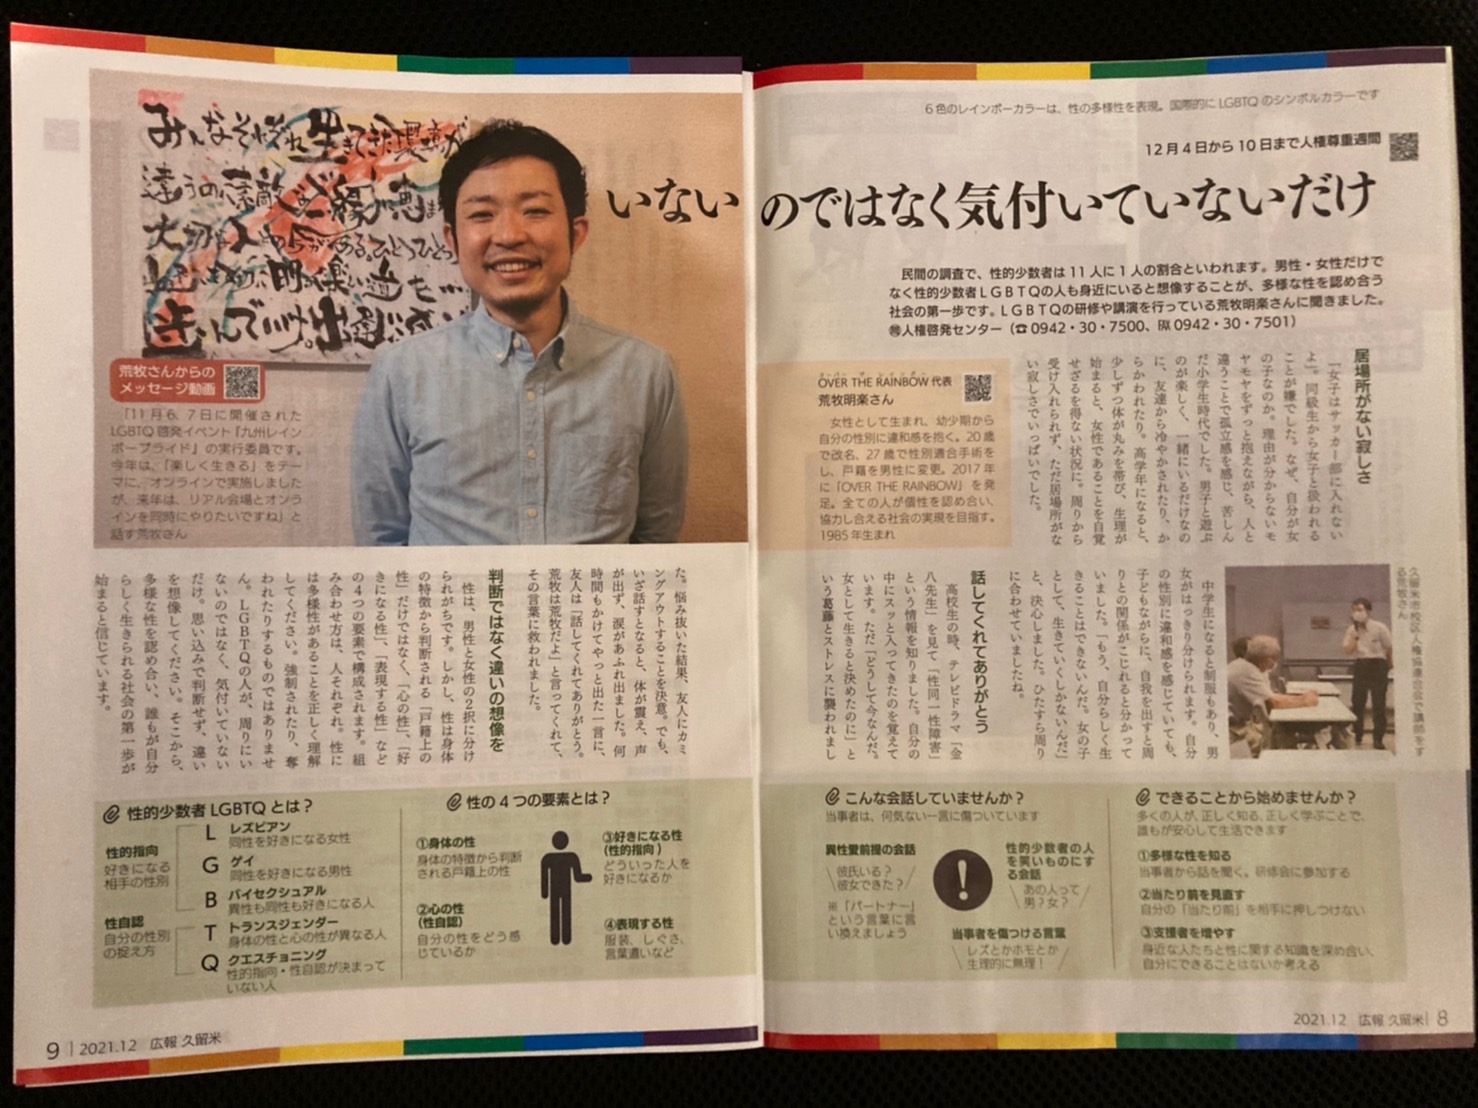 6色のレインボーカラーは、性の多様性を表現。国際的にLGBTQのシンボルカラーです
12月4日から10日まで人権尊重週間
いないのではなく気付いていないだけ
民間の調査で、性的少数者は11人に1人の割合といわれます。男性・女性だけで
なく性的少数者LGBTQの人も身近にいると想像することが、多様な性を認め合う
社会の第一歩です。LGBTQの研修や講演を行っている荒牧明楽さんに聞きました。
人権啓発センター（☎0942・30・7500、FAX 0942・30・7501）
OVER THE RAINBOW 代表
荒牧明楽さん
女性として生まれ、幼少期から
自分の性別に違和感を抱く。20歳
で改名、27歳で性別適合手術を
し、戸籍を男性に変更。2017年
に「OVER THE RAINBOW」を発
足。全ての人が個性を認め合い、
協力し合える社会の実現を目指す。
1985年生まれ
居場所がない寂しさ
「女子はサッカー部に入れない
よ」。同級生から女子と扱われる
ことが嫌でした。なぜ、自分が女
の子なのか。理由が分からないモ
ヤモヤをずっと抱えながら、人と
違うことで孤立感を感じ、苦しん
だ小学生時代でした。男子と遊ぶ
のが楽しく、一緒にいるだけなの
に、友達から冷やかされたり、か
らかわれたり。高学年になると、
少しずつ体が丸みを帯び、生理が
始まると、女性であることを自覚
せざるを得ない状況に。周りから
受け入れられず、ただ居場所がな
い寂しさでいっぱいでした。
久留米市校区人権協連合会で講師をす
る荒牧さん
中学生になると制服もあり、男
女がはっきり分けられます。自分
の性別に違和感を感じていても、
子どもながらに、自我を出すと周
りとの関係がこじれると分かって
いました。「もう、自分らしく生
きることはできないんだ。女の子
として、生きていくしかないんだ」
と、決心しました。ひたすら周り
に合わせていましたね。
話してくれてありがとう
高校生の時、テレビドラマ「金
八先生」を見て「性同一性障害」
という情報を知りました。自分の
中にスッと入ってきたのを覚えて
います。ただ「どうして今なんだ。
女として生きると決めたのに」と
いう葛藤とストレスに襲われまし
た。悩み抜いた結果、友人にカミ
ングアウトすることを決意。でも、
いざ話すとなると、体が震え、声
が出ず、涙があふれ出ました。何
時間もかけてやっと出た一言に、
友人は「話してくれてありがとう。
荒牧は荒牧だよ」と言ってくれて、
その言葉に救われました。
判断ではなく違いの想像を
性は、男性と女性の2択に分け
られがちです。しかし、性は身体
の特徴から判断される「戸籍上の
性」だけではなく、「心の性」、「好
きになる性」、「表現する性」など
の4つの要素で構成されます。組
み合わせ方は、人それぞれ。性に
は多様性があることを正しく理解
してください。強制されたり、奪
われたりするものではありませ
ん。LGBTQの人が、周りにい
ないのではなく、気付いていない
だけ。思い込みで判断せず、違い
を想像してください。そこから、
多様な性を認め合い、誰もが自分
らしく生きられる社会の第一歩が
始まると信じています。
みんなそれぞれ生きてきた環境が
違うの素敵なご縁に恵ま
大切な
荒牧さんからの
メッセージ動画
「11月6、7日に開催された
LGBTQ啓発イベント『九州レイン
ボープライド』の実行委員です。
今年は、「楽しく生きる」をテー
マに、オンラインで実施しました
が、来年は、リアル会場とオンラ
インを同時にやりたいですね」と
話す荒牧さん
こんな会話していませんか？
当事者は、何気ない一言に傷ついています
異性愛前提の会話
彼氏いる？
彼女できた？
※「パートナー」
という言葉に言
い換えましょう
性的少数者の人
を笑いものにす
る会話
あの人って
男？女？
当事者を傷つける言葉
レズとかホモとか
生理的に無理！
できることから始めませんか？
多くの人が、正しく知る、正しく学ぶことで、
誰もが安心して生活できます
①多様な性を知る
当事者から話を聞く。研修会に参加する
②当たり前を見直す
自分の「当たり前」を相手に押しつけない
③支援者を増やす
身近な人たちと性に関する知識を深め合い、
自分にできることはないか考える
2021.12 広報 久留米 8
性的少数者LGBTQとは？
性的指向
好きになる
相手の性別
L レズビアン
同性を好きになる女性
G ゲイ
同性を好きになる男性
B バイセクシュアル
異性も同性も好きになる人
性自認
自分の性別
の捉え方
T トランスジェンダー
身体の性と心の性が異なる人
Q クエスチョニング
性的指向・性自認が決まって
いない人
性の4つの要素とは？
①身体の性
身体の特徴から判断
される戸籍上の性
②心の性
（性自認）
自分の性をどう感
じているか
③好きになる性
（性的指向）
どういった人を
好きになるか
④表現する性
服装、しぐさ、
言葉遣いなど
9 2021.12 広報 久留米